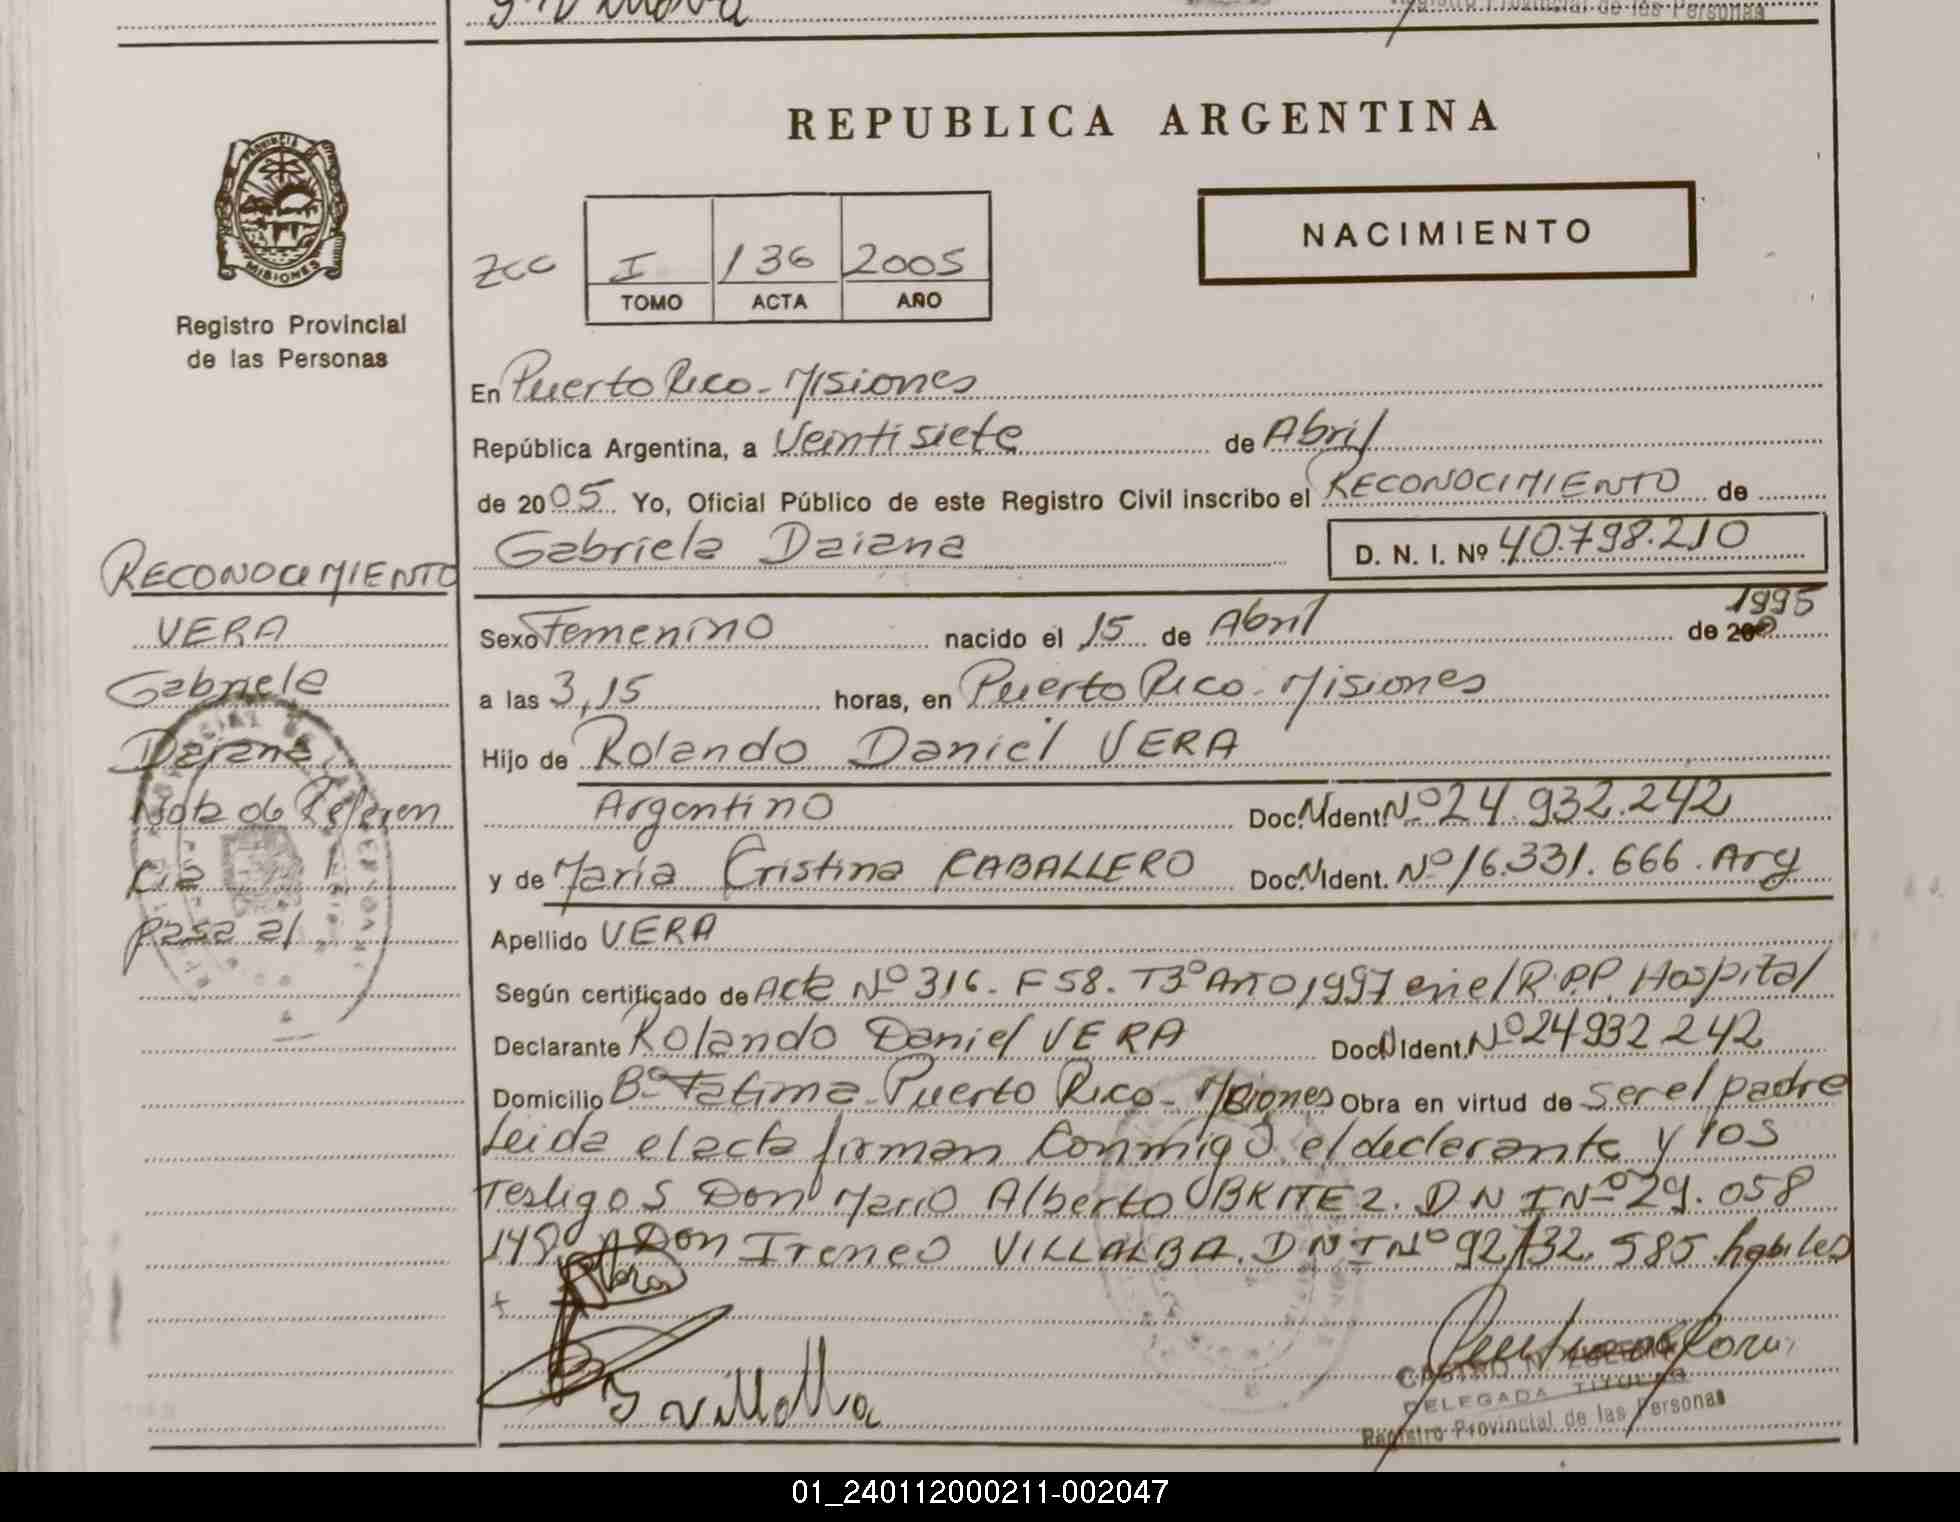 Registro Provincial de las Personas
REPUBLICA ARGENTINA
PROVINCIA DE
MISIONES
Registro Provincial
de las Personas
NACIMIENTO
zcc I 136 2005
TOMO ACTA AÑO
En Puerto Rico - Misiones
República Argentina, a Veintisiete de Abril
de 2005 Yo, Oficial Público de este Registro Civil inscribo el RECONOCIMIENTO de
Gabriela Daiana D. N. I. Nº 40.798.210
RECONOCIMIENTO
VERA
Gabriela
Daiana
Nota de Referen
cia
pasa al
Sexo Femenino nacido el 15 de Abril de 1995
a las 3,15 horas, en Puerto Rico - Misiones
Hijo de Rolando Daniel VERA
Argentino Doc. N. Ident. Nº 24.932.242
y de María Cristina CABALLERO Doc. N. Ident. Nº 16.331.666. Arg
Apellido VERA
Según certificado de Acta Nº 316. F 58. T3º Año 1997 en el R.P.P. Hospital
Declarante Rolando Daniel VERA Doc. N. Ident. Nº 24932242
Domicilio Bº Fatima - Puerto Rico - Misiones Obra en virtud de ser el padre
Leida el acta firman conmigo el declarante y los
Testigos Don Mario Alberto D N I Nº 29.058
149 Don Ireneo VILLALBA. D N I Nº 92.132.585 habiles
I villalba
CASTRO
DELEGADA TITULAR
Registro Provincial de las Personas
01_240112000211-002047